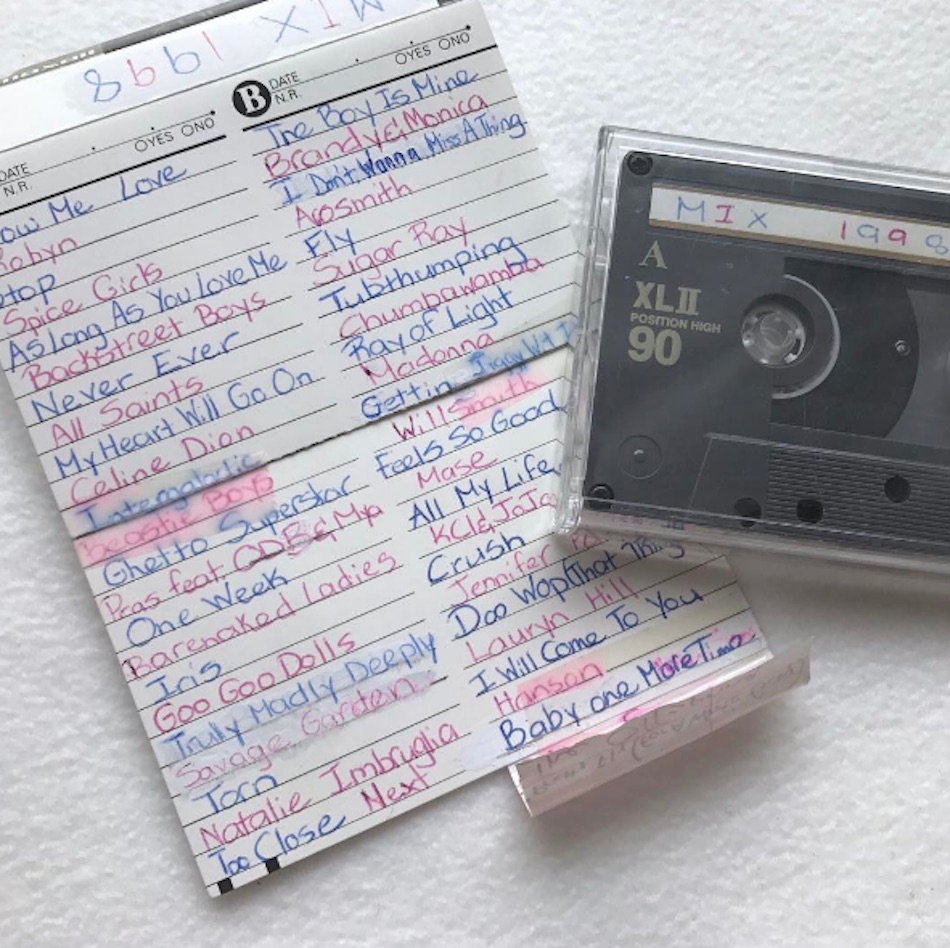 MIX 1998
DATE
N.R.
YES NO
Me Love
Robyn
Stop
Spice Girls
As Long As You Love Me
Backstreet Boys
Never Ever
All Saints
My Heart Will Go On
Celine Dion
Intergalactic
beastie Boys
Ghetto Superstar
Pras feat. ODB & Mya
One Week
Barenaked Ladies
Iris
Goo Goo Dolls
Truly Madly Deeply
Savage Garden
Torn
Natalie Imbruglia
Too Close Next
B
DATE
N.R.
YES NO
The Boy Is Mine
Brandy & Monica
I Don't Wanna Miss A Thing
Arosmith
Fly
Sugar Ray
Tubthumping
Chumbawamba
Ray of Light
Madonna
Gettin Jiggy Wit
Will Smith
Feels So Good
Mase
All My Life
KCI & JoJo
Crush
Jennifer
Doo Wop (That Thing
Lauryn Hill
I Will Come To You
Hanson
Baby one More Time
MIX 1998
A
XLII
POSITION HIGH
90